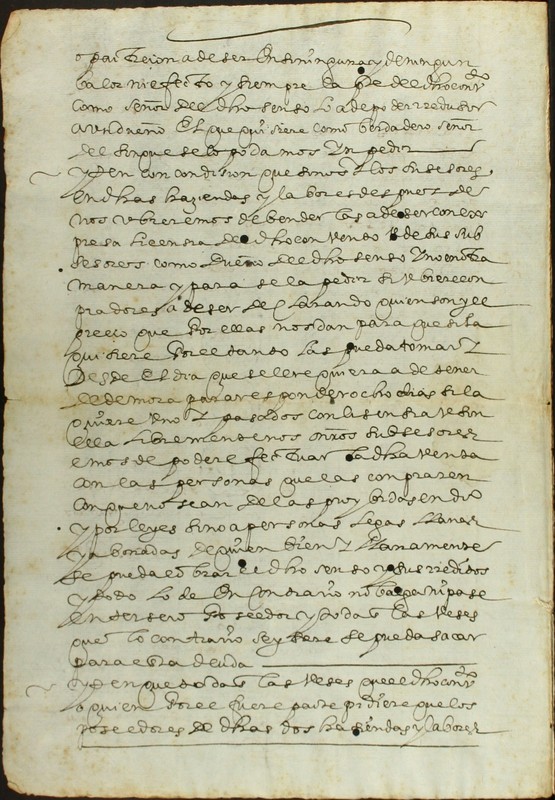 o partiçion a de ser en sí ninguna y de ningun
balor ni efecto y siempre la pte del dho convto
como señor del dho senso lo a de poder rredusir
a un dueño el que quisiere como berdadero señor
del sin que se lo podamos ynpedir
yten con condision que si nos y los susesores
en dhas haziendas y labores despues de
nos ubieremos de bender las a de ser con ex
presa lisensia del dho convento y de sus sub
sesores como dueño del dho senso y no en otra
manera y para se la pedir si ubiere con
pradores a de ser declarando quien son y el
precio que por ellas nos dan para que si la
quisiere por el tanto las pueda tomar y
desde el dia que se le rrequiera a de tener
de demora para responder ocho dias si la
quiere o no y pasados con lisensia u sin
ella libremente nos otros subsesores
emos de poder efectuar la dha venta
con las personas que las compraren
con que no sean de las proybidas en dro
y por leyes sino a personas legas llanas
y abonadas de quien bien y llanamente
se pueda cobrar el dho senso y sus rreditos
y todo lo de en contrario no balga ni pase
en tersero poseedor y todas las veses
que lo contrario se ysiere se pueda sacar
para esta deuda
yten que todas las veses que el dho convto
o quien por el fuere parte pidiere que los
poseedores de dhas dos hasiendas y labores